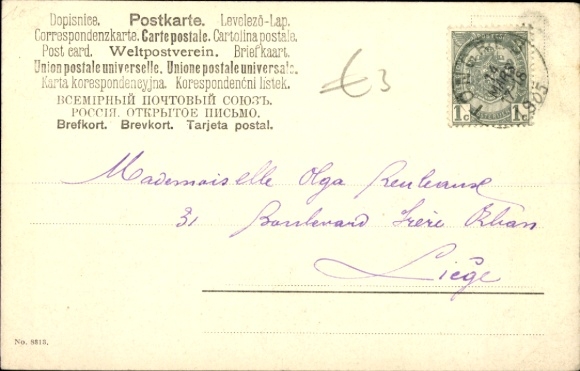 Dopisnice. Postkarte. Levelező-Lap.
Correspondenzkarte. Carte postale. Cartolina postale.
Post card. Weltpostverein. Briefkaart.
Union postale universelle. Unione postale universale.
Karta korespondencyjna. Korespondenční lístek.
ВСЕМІРНЫЙ ПОЧТОВЫЙ СОЮЗЪ.
РОССІЯ. ОТКРЫТОЕ ПИСЬМО.
Brefkort. Brevkort. Tarjeta postal.
€3
1c 1c
MARS
1905
Mademoiselle Olga
31 Boulevard Frère Orban
Liège
No. 8813.